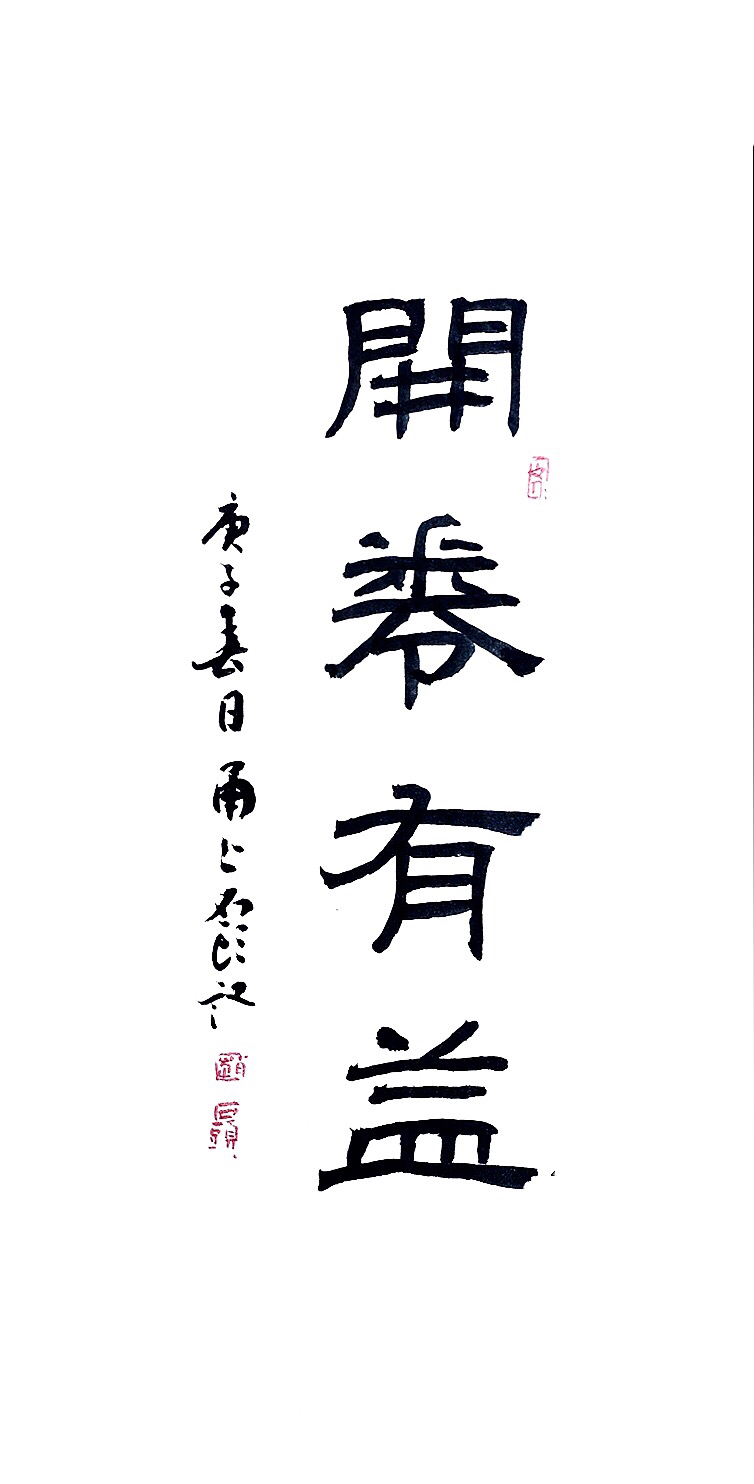 開卷有益
庚子春日甬上
記